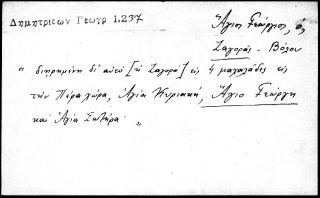 Δημητριέων Γεωγρ 1,237
Ἅγιος Γεώργιος, ὁ
Ζαγορᾶς - Βόλου
" διῃρημένη δι' αὐτὸ [ἡ Ζαγορὰ] εἰς 4 μαχαλάδες εἰς
τὴν Πέρα χώρα, Ἁγία Κυριακή, Ἅγιο Γεώργη
καὶ Ἁγία Σωτήρα. "